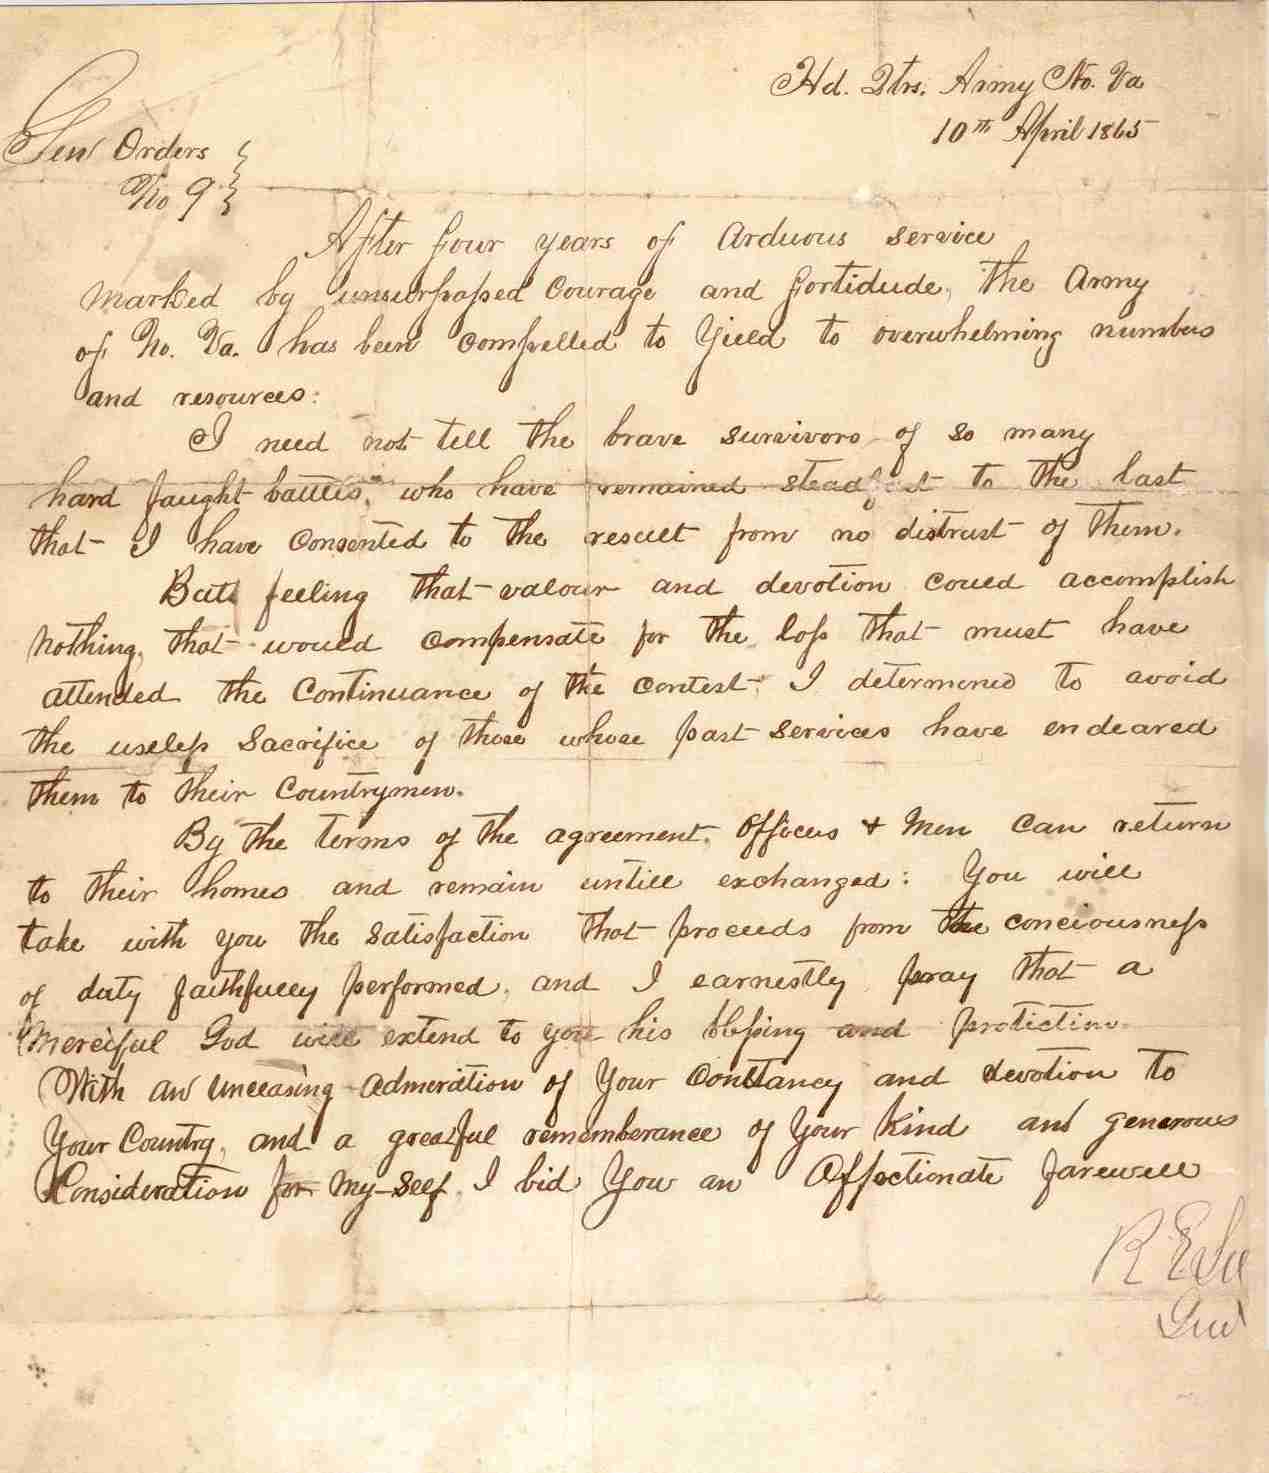 Hd. Qtrs. Army No. Va
10th April 1865
Gen Orders
No 9
After four years of Arduous service
marked by unsurpassed Courage and fortidude, the Army
of No. Va. has been compelled to Yield to overwhelming numbers
and resources:
I need not tell the brave survivors of so many
hard faught battles, who have remained steadfast to the last
that I have Consented to the result from no distrust of them.
But feeling that valour and devotion could accomplish
nothing, that would compensate for the loss that must have
attended the Continuance of the contest, I determened to avoid
the useless Sacrifice of those whose past services have endeared
them to their Countrymen.
By the terms of the agreement, Officers & Men Can return
to their homes and remain untill exchanged: You will
take with you the Satisfaction that proceeds from the conciousness
of duty faithfully performed, and I earnestly pray that a
Merciful God will extend to you his blessing and protection
With an unceasing admeration of Your Constancy and devotion to
Your Country, and a greatful rememberance of Your Kind and generous
Consideration for my-self, I bid You an Affectionate farewell
R E Lee
Genl